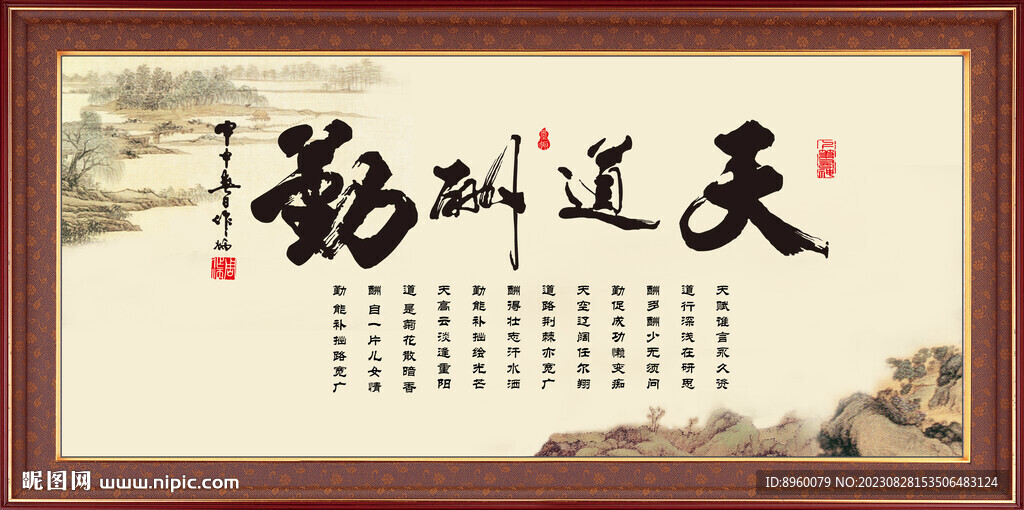 天道酬勤
天赋谁言永久资
道行深浅在研思
酬多酬少无须问
勤促成功懒变痴
天空辽阔任尔翔
道路荆棘亦宽广
酬得壮志汗水洒
勤能补拙绘光芒
天高云淡逢重阳
道是菊花散暗香
酬自一片儿女情
勤能补拙路宽广
昵图网 www.nipic.com
ID:8960079 NO:20230828153506483124